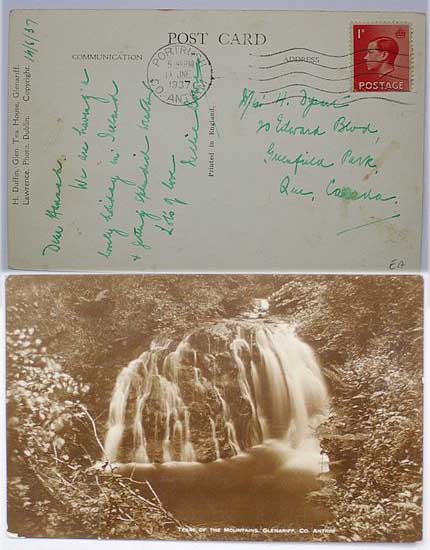 POST CARD
COMMUNICATION
ADDRESS
PORTRUSH
5 PM
14 JNE
1937
CO. ANTRIM
1D
POSTAGE
H. Duffin, Glen Tea House, Glenariff.
Lawrence, Photo, Dublin. Copyright.
14/6/37
Dear Hannah
We are having a
lovely holiday in Ireland
& getting splendid weather
Lots of love
Nellie
Printed in England.
Miss H. Dyer
20 Edward Blvd,
Greenfield Park
Que, Canada.
EA
TEARS OF THE MOUNTAINS, GLENARIFF, CO. ANTRIM